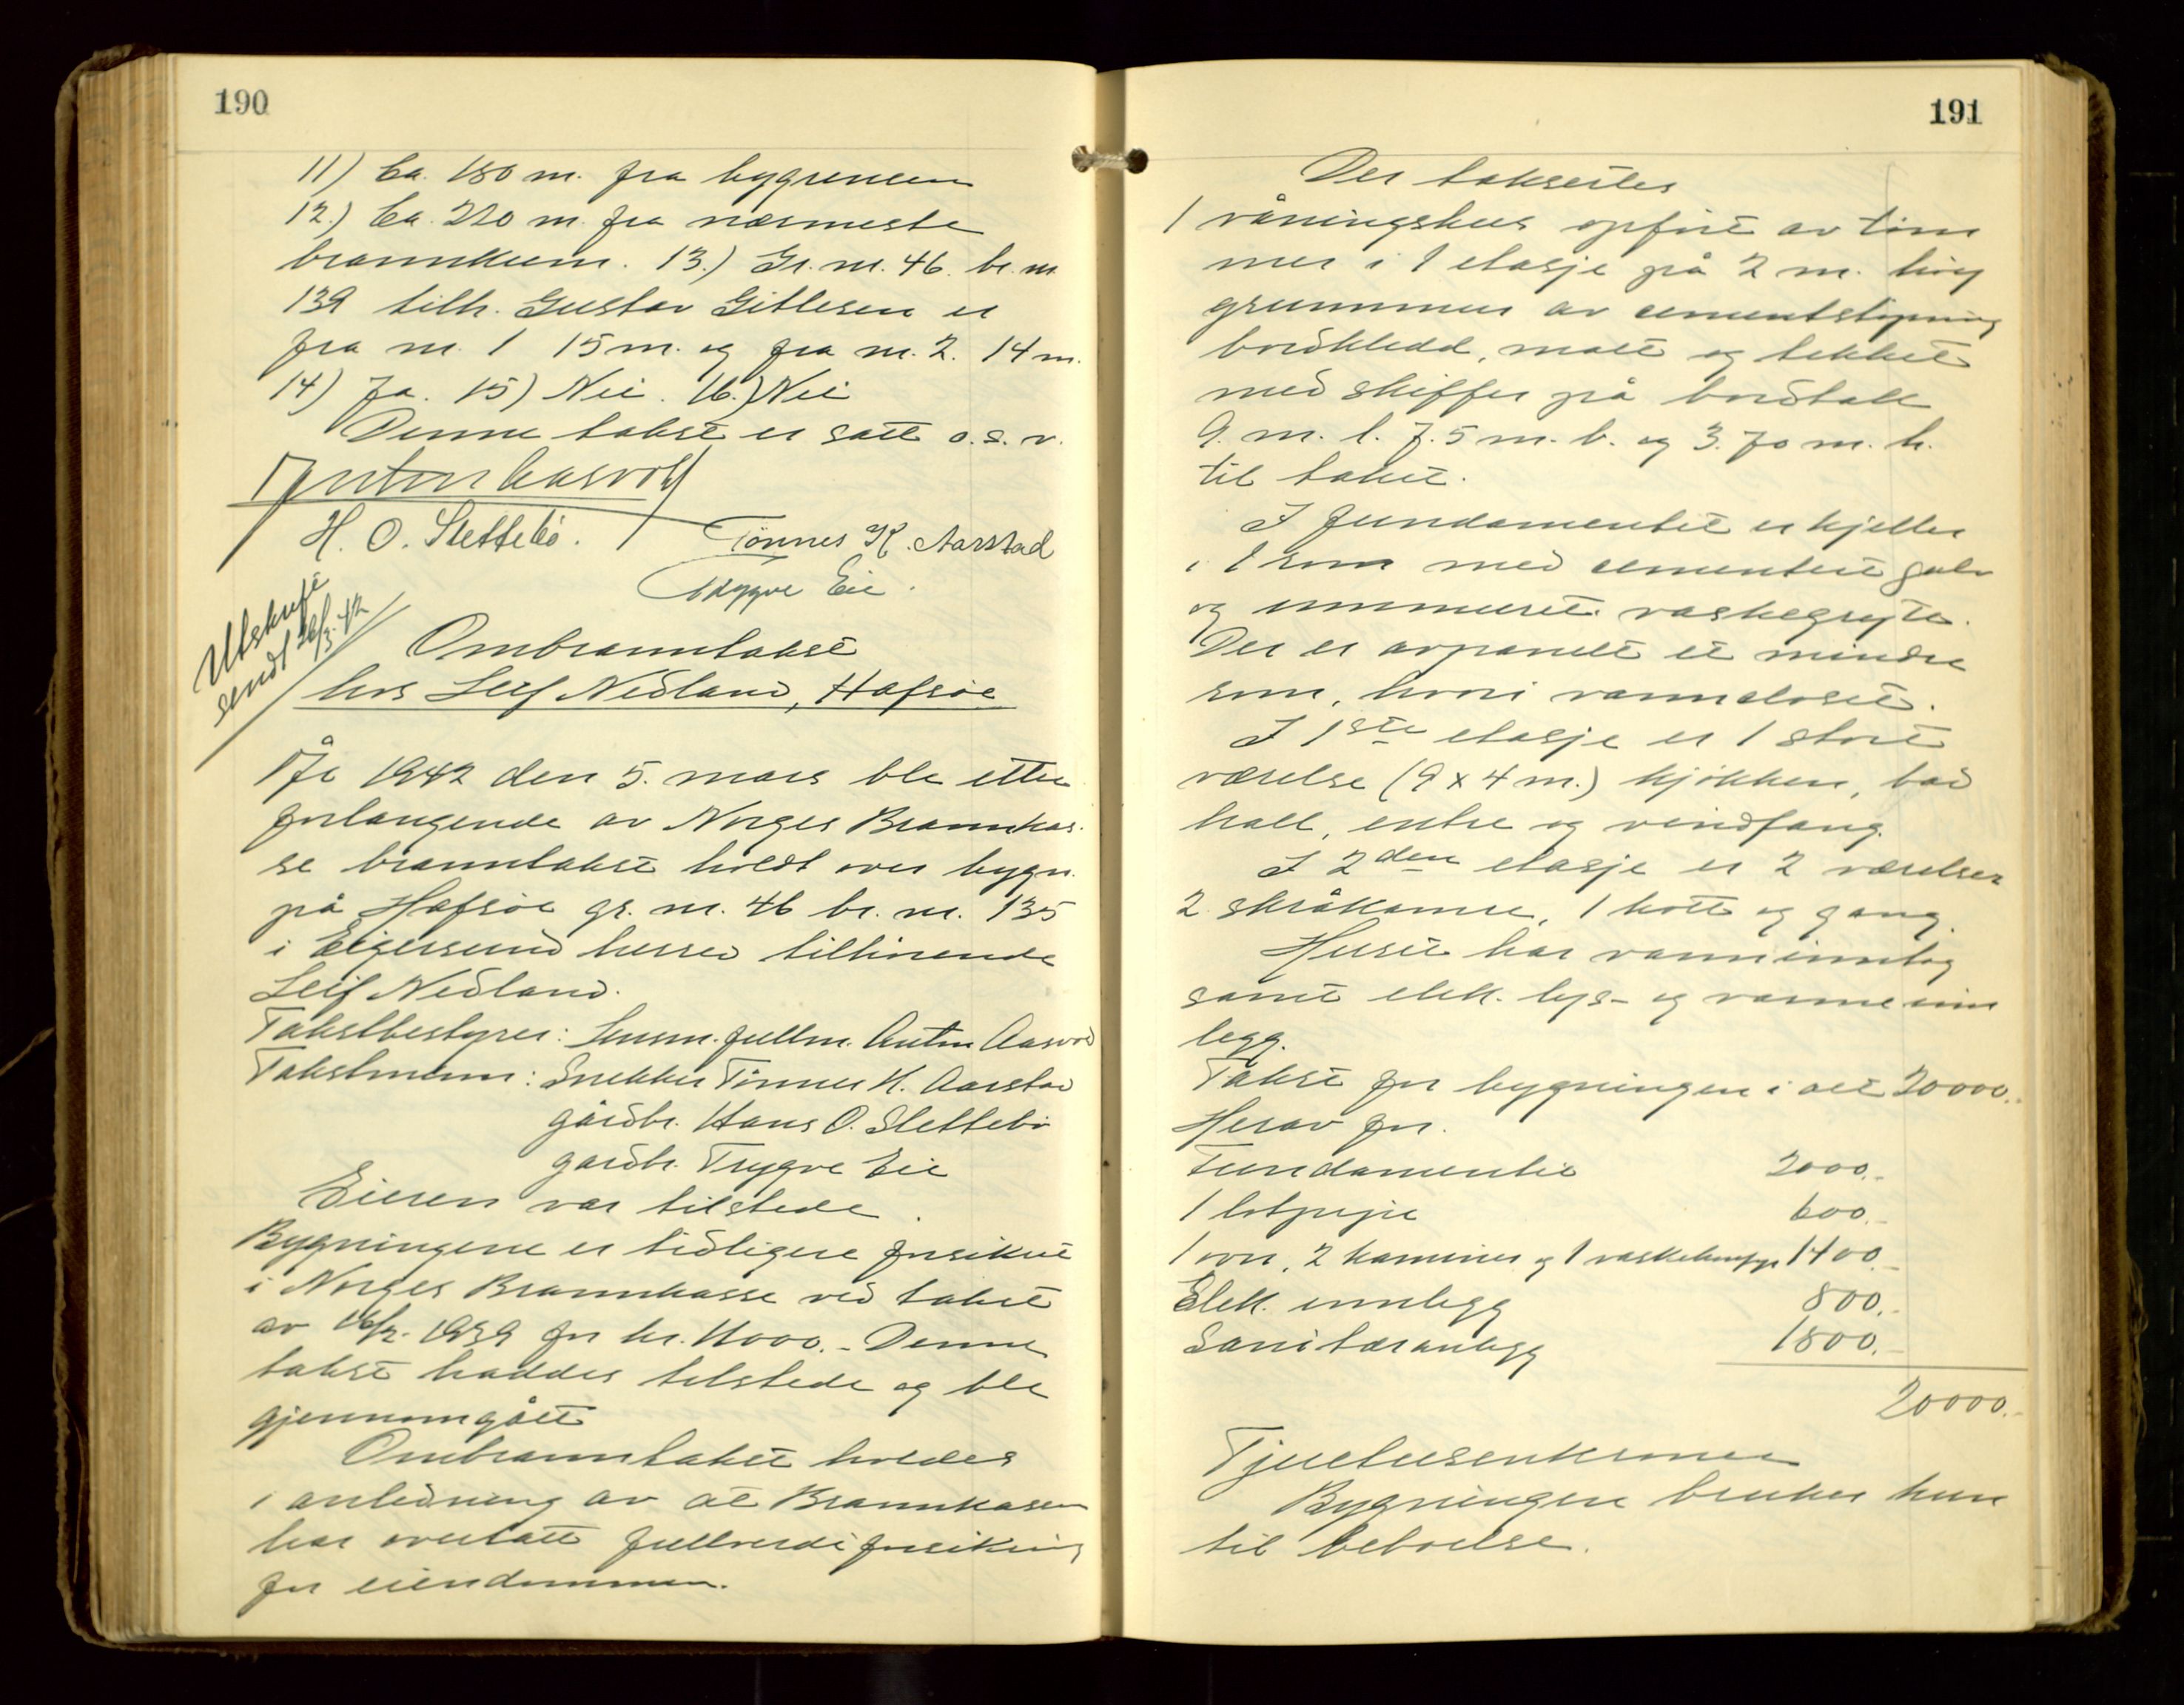 190
11) Ca. 180 m. fra bygrensen
12.) Ca. 220 m. fra nærmeste
brannkum. 13.) Gr. nr. 46 br. nr.
139 tilh. Gustav Gitlesen er
fra nr. 1 15 m. og fra nr. 2. 14 m.
14) Ja. 15) Nei. 16.) Nei
Denne takst er satt o.s.v.
Anton Aasvold
H. O. Slettebö.
Tönnes K. Aarstad
Trygve Eie.
Utskrift
sendt 26/3.42
Ombranntakst
hos Leif Nedland, Hafsöe
År 1942 den 5. mars ble etter
forlangende av Norges Brannkas-
se branntakst holdt over bygn.
på Hafsöe gr. nr. 46 br. nr. 135
i Eigersund herred tilhörende
Leif Nedland.
Takstbestyrer: Lensm. fullm. Anton Aasvold
Takstmenn: Snekker Tönnes K. Aarstad
gårdbr. Hans O. Slettebö
gårdbr. Trygve Eie
Eieren var tilstede.
Bygningene er tidligere forsikret
i Norges Brannkasse ved takst
av 1939 for kr. 11000.- Denne
takst haddes tilstede og ble
gjennomgått
Ombranntakst holdes
i anledning av at Brannkassen
har overtatt fullverdiforsikring
for eiendommen.
191
Der takseres
1 våningshus opfört av töm
mer i 1 etasje på 2 m. höy
grunnmur av cementstöpning
bordkledd, malt og tekket
med skiffer på bordtak
9. m. l. 7.5 m. b. og 3.70 m. h.
til taket.
I fundamentet er kjeller
i 1 rom med cementert gulv
og innmuret vaskegryte.
Der er avpanelt et mindre
rom, hvori vannclosett.
I 1ste etasje er 1 stort
værelse (9 x 4 m.) kjökken, bad
hall, entre og vindfang.
I 2den etasje er 2 værelser
2 skråkamre, 1 kott og gang.
Huset har vanninnlegg
samt elek. lys- og varme inn
legg.
Takst for bygningen i alt 20000.-
Herav for
Fundamentet 2000.-
1 löpepipe 600.-
1 ovn, 2 kaminer og 1 1400.-
Elek. innlegg 800.-
Sanitæranlegg 1800.-
20000.-
Tjuetusenkroner
Bygningen brukes kun
til beboelse.